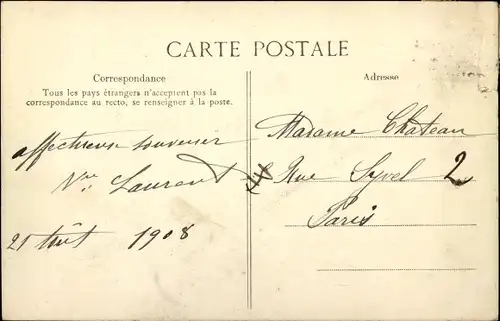 CARTE POSTALE
Correspondance
Tous les pays étrangers n'acceptent pas la
correspondance au recto, se renseigner à la poste.
Adresse
affectueux souvenir
Vve Laurent
21 Août 1908
Madame Chateau
Rue 2
Paris